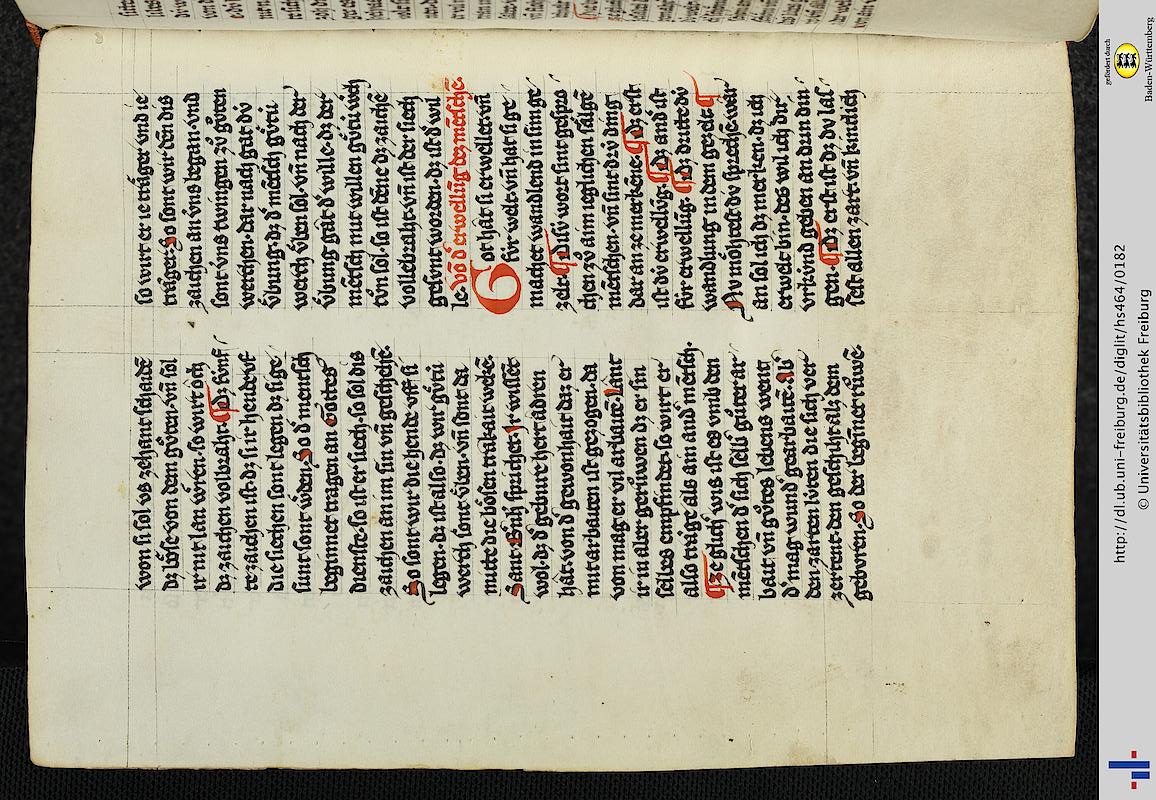 won si sol vs zehant schaidē
dz böse von dem gůten· vñ sol
ir nit lan wren· so wirt och
dz zaichen volbraht· ¶ Dz fúnf
te zaichen ist· dz si ir hende vf
die siechen sont legen dz si ge
sunt sont wden· So d' mentsch
beginnet tragen an gottes
dienste· so ist er siech· so sol dis
zaichen an im sin vñ geschehē·
So sont wir die hende vff si
legen· dz ist also· dz wir gůtú
werch sont vͤben· vñ sont da
mitte die bösen trakait wekē·
Sant sprichet· Ir wisset
wol· dz d' gebure hert adren
hat· von d' gewonhait daz er
mit arbaiten ist gezogen· da
von mag er vil arbaitē· lant
ir in aler geruwen dz er sin
selbes empfindet· so wirt er
also träg als ain and' mētsch·
¶ Ze glich' wis ist es vmb den
mētschen d' sich selb' gůter ar
bait vñ gůtes lebens went
d' mag wund' gearbaitē· Als
den zarten lúten die sich ver
zertent· den geschiht als dem
geburen· So der beginnet růwē·
so wirt er ie träger vnd ie
träger· So sont wir dēn dis
zaichen an vns legan· vnd
sont vns twingen zů gůten
werchen· dar nach gat dú
vͤbung· dz d' mētsch gůtú
werch vͤben sol· vñ nach der
vͤbung gat d' wille· dz der
mētsch mit willen gůtú wch
tůn sol· so ist dēne dz zaichē
vollebraht· vñ ist der siech
gesunt worden· dz ist d' wil
le· võ d' erwellūg dez mētschē·
Got hat si erwellet· vñ
fúr welt· vñ hat si ge
machet wandlend in sinige
zelt· ¶ Disú wort sint gespro
chen zů aim ieglichen säligē
mētschen· vñ sint drú ding
dar an ze merkēne· ¶ Dz erst
ist dú erwellūg· ¶ Dz and' ist
fúr erwellūg· ¶ Dz dritte dú
wandlung in dem gezelt· ¶
Nv möhtest du sprechē· war
an sol ich dz merken· dz ich
erwelt bin· des wil ich dir
vrkúnd geben an drin din
gen· ¶ Dz erst ist dz du lai
sest allen zart· vñ kintlich
http://dl.ub.uni-freiburg.de/diglit/hs464/0182
© Universitätsbibliothek Freiburg
gefördert durch
Baden-Württemberg